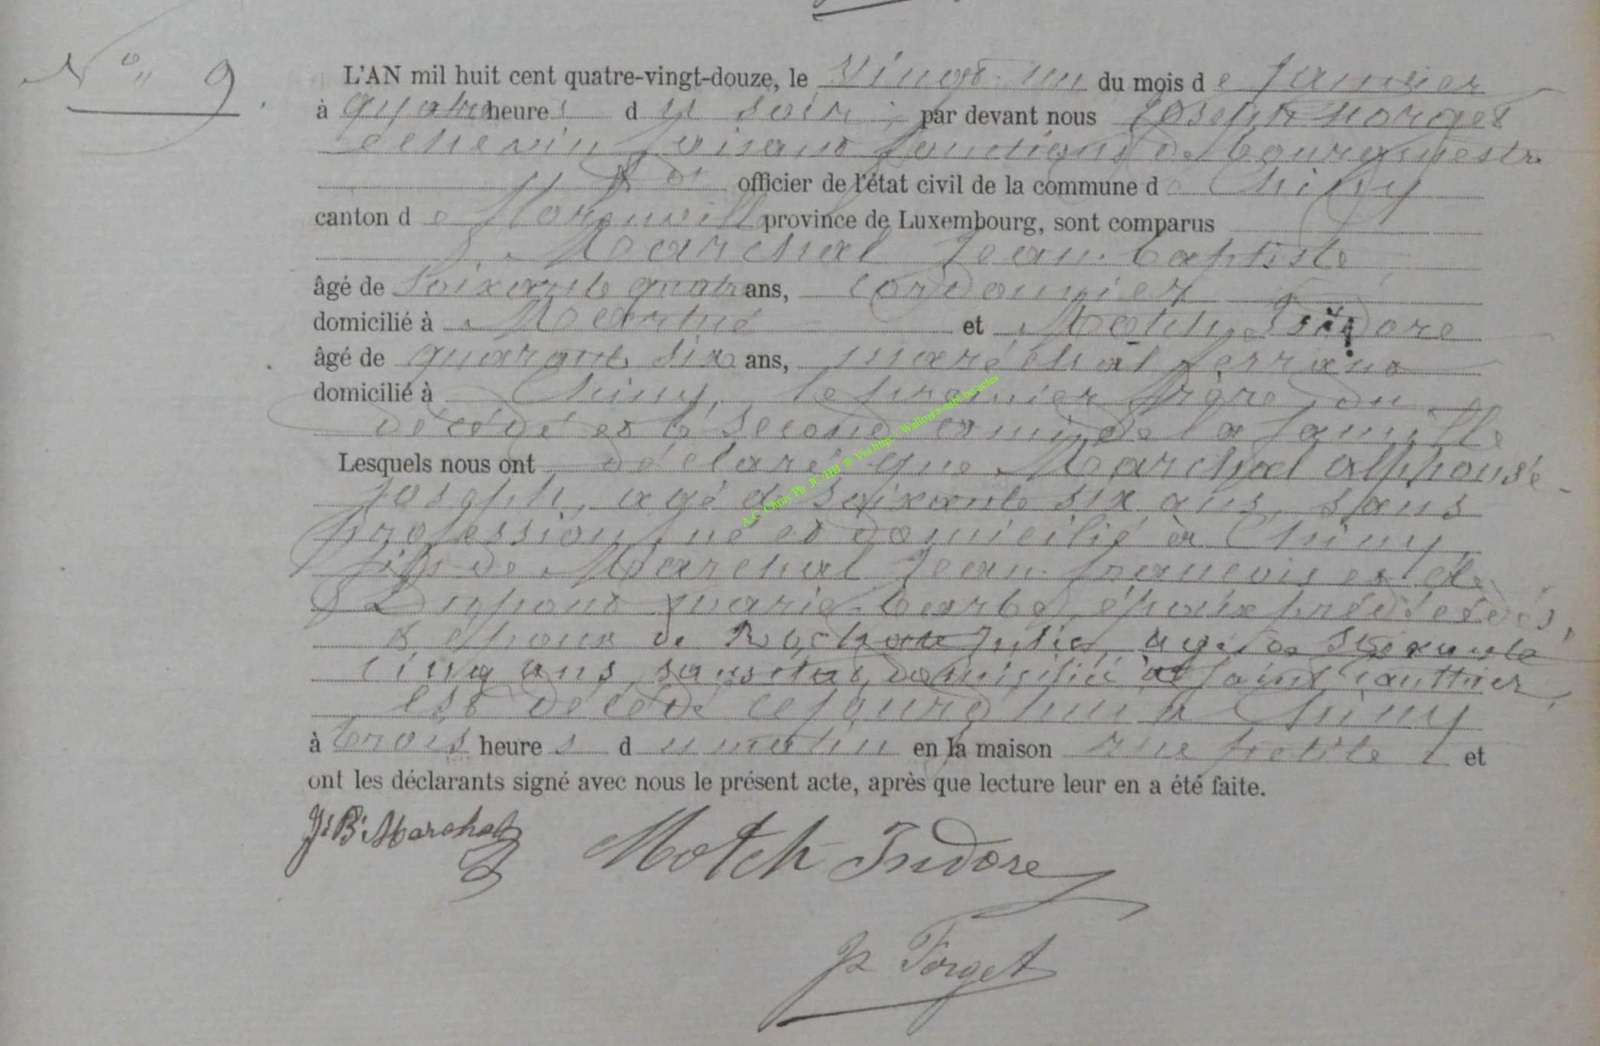 N° 9.
L'AN mil huit cent quatre-vingt-douze, le vingt-un du mois de Janvier
à quatre heures du soir ; par devant nous Joseph Forget
échevin faisant fonctions de bourgmestre
officier de l'état civil de la commune de Chiny
canton de Florenville province de Luxembourg, sont comparus
Marchal Jean-Baptiste
âgé de soixante quatre ans, cordonnier
domicilié à Martué et Motch Isidore
âgé de quarante six ans, maréchal ferrant
domicilié à Chiny, le premier frère du
décédé et le second ami de la famille
Lesquels nous ont déclaré que Marchal Alphonse-
Joseph, agé de soixante six ans, sans
profession, né et domicilié à Chiny,
fils de Marchal Jean-François et de
Dupont Marie-Barbe, époux prédécédés,
& époux de Julie, agée de soixante
cinq ans, sans état, domiciliée à
est décédé cejourd'hui à Chiny
à trois heures du matin en la maison rue petite et
ont les déclarants signé avec nous le présent acte, après que lecture leur en a été faite.
Jn Bt Marchal Motch Isidore
Js Forget